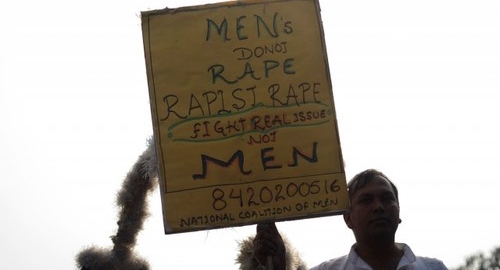 MEN's
DONOT
RAPE
RAPIST RAPE
FIGHT REAL ISSUE
NOT
MEN
8420200516
NATIONAL COALITION OF MEN